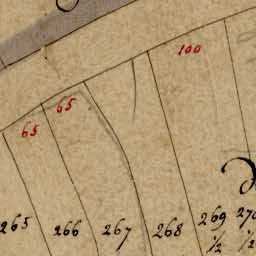 100
65
65
265 266 267 268 269 270
1/2 1/2